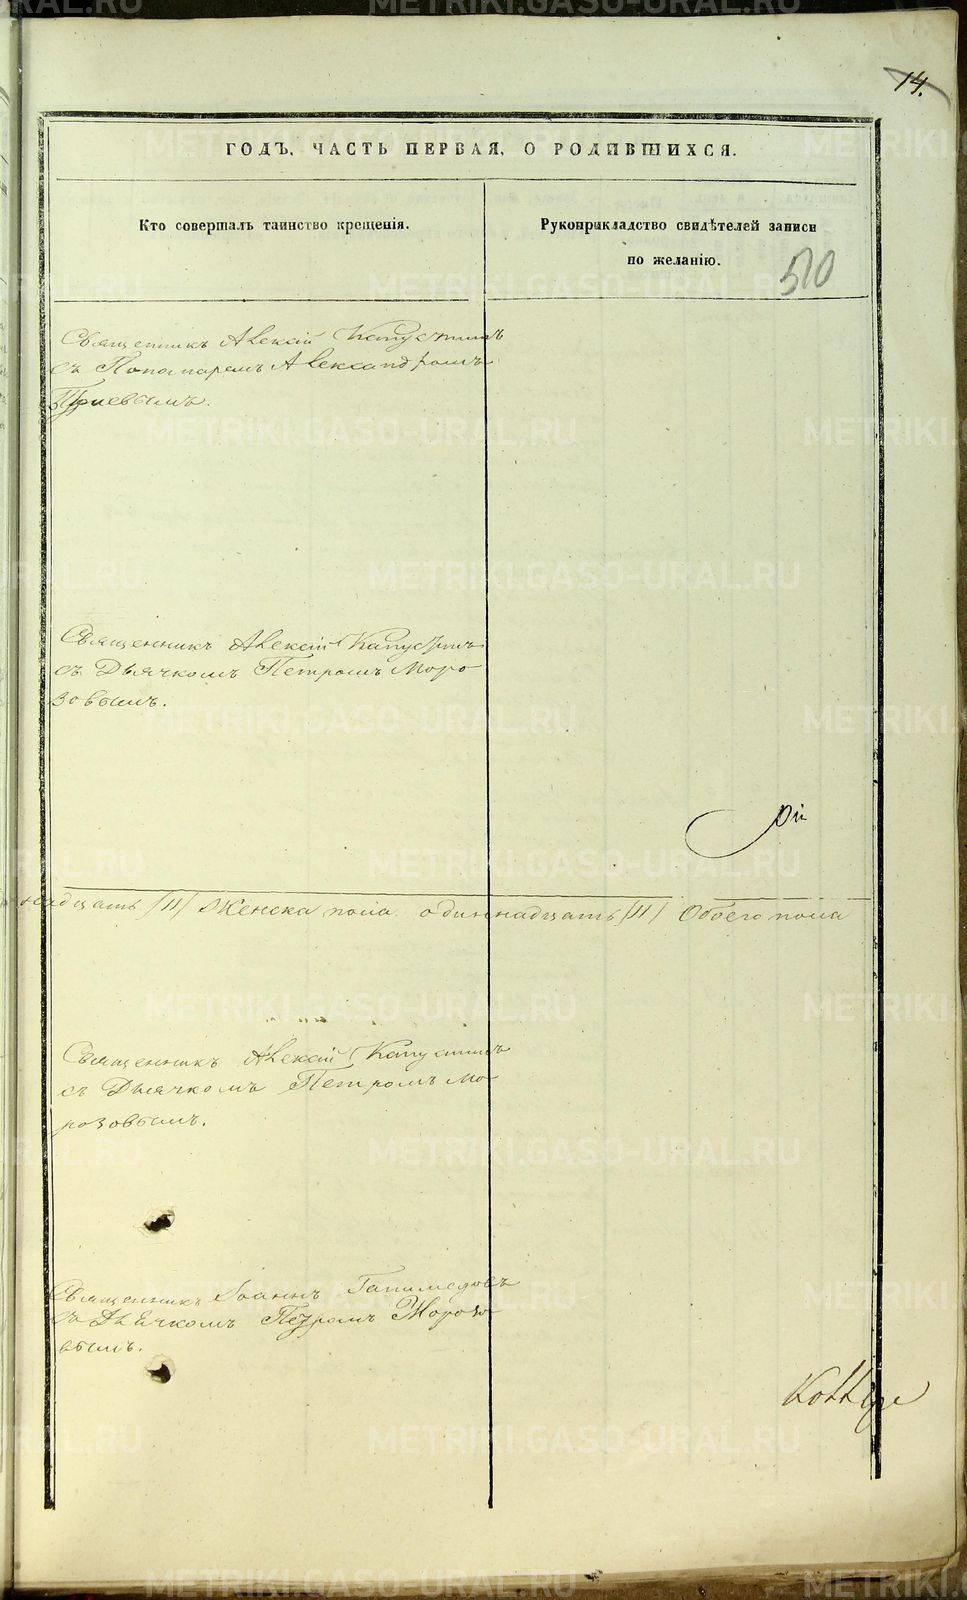 14.
ГОДЪ, ЧАСТЬ ПЕРВАЯ, О РОДИВШИХСЯ.
Кто совершалъ таинство крещенія.
Рукоприкладство свидѣтелей записи
по желанію.
510
Священникъ Алексій Капустинъ
съ Понамаремъ Александромъ
Священникъ Алексій Капустинъ
съ Дьячкомъ Петромъ Моро
зовымъ.
надцать /11/ Женска пола одиннадцать /11/ Обоего пола
Священникъ Алексій Капустинъ
съ Дьячкомъ Петромъ Мо
розовымъ.
Священникъ Іоаннъ Ганимедовъ
съ Дьячкомъ Петромъ Морозо
вымъ.
METRIKI.GASO-URAL.RU